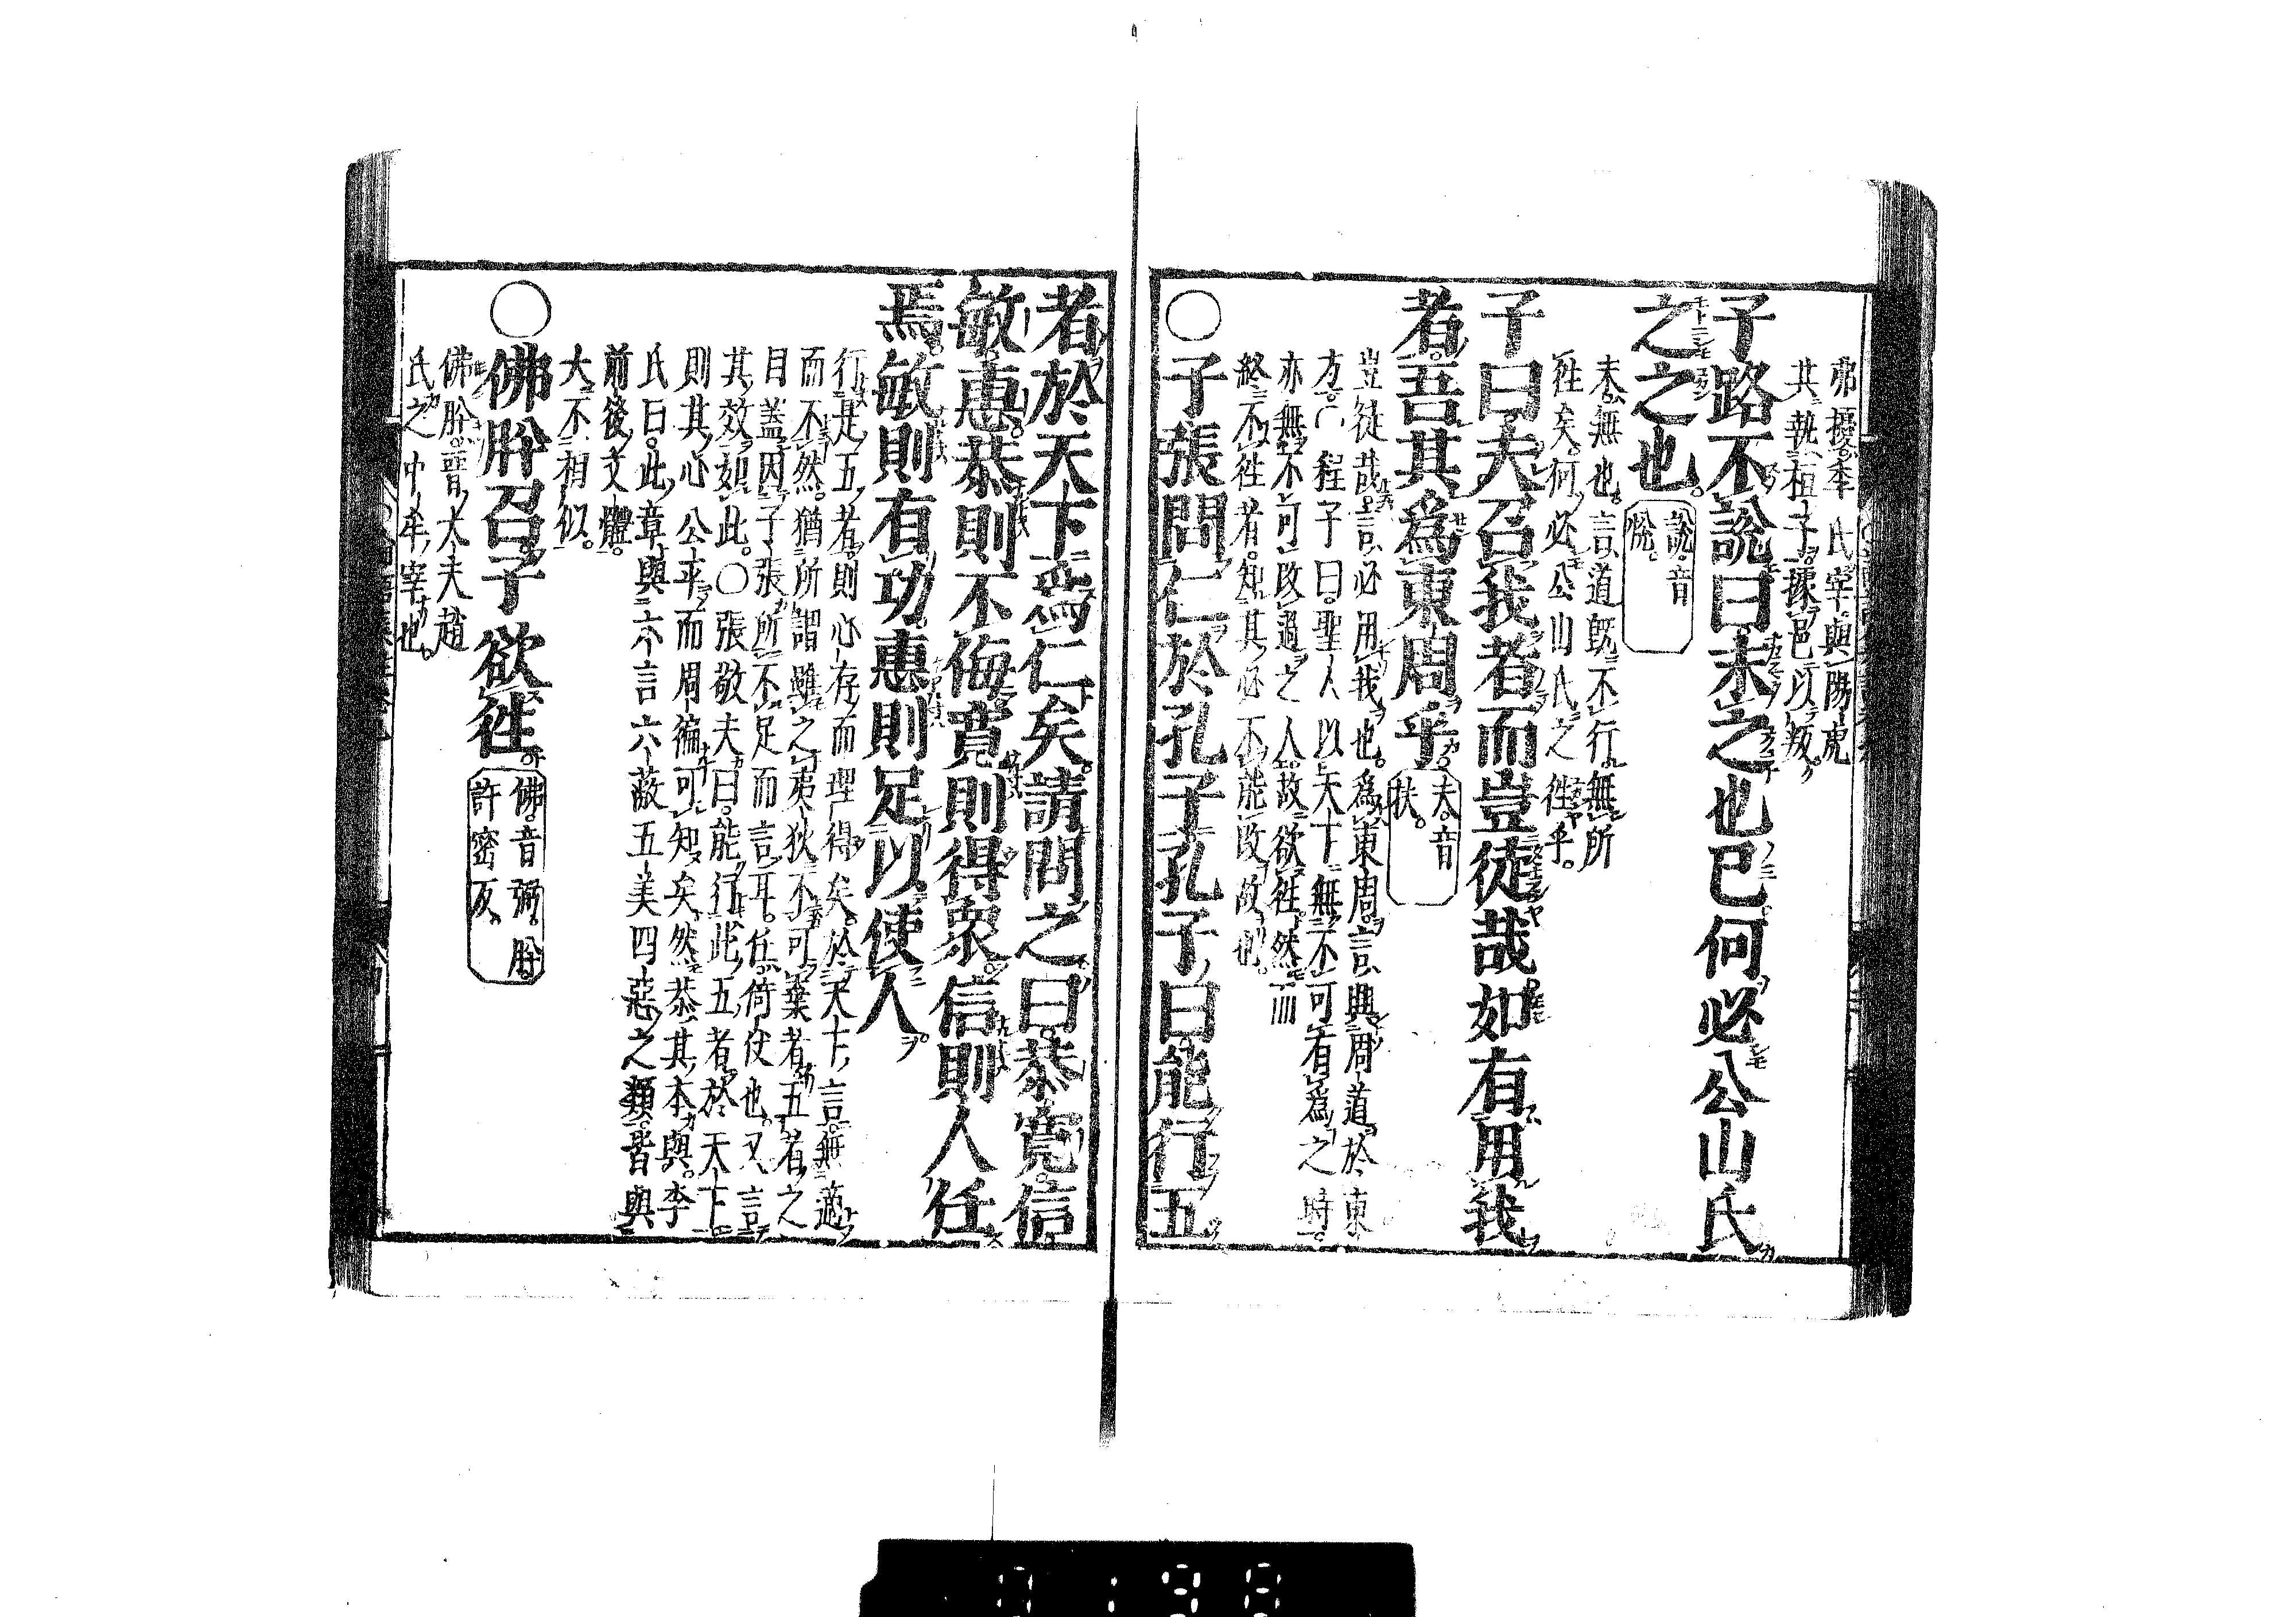 弗擾季氏宰與陽虎
其執桓子據邑以叛
子路不說曰末之也已何必公山氏
之之也
說音
悅
末無也言道既不行無所
徃矣何必公山氏之徃乎
子曰夫召我者而豈徒哉如有用我
者吾其爲東周乎
夫音
扶
豈徒哉言必用我也爲東周言興周道於東
方〇程子曰聖人以天下無不可有爲之時
亦無不可改過之人故欲徃然而
終不徃者知其必不能改故也
〇子張問仁於孔子孔子曰能行五
者於天下爲仁矣請問之曰恭寬信
敏惠恭則不侮寬則得衆信則人任
焉敏則有功惠則足以使人
行是五者則心存而理得矣於天下言無適
而不然猶所謂雖之夷狄不可棄者五者之
目蓋因子張所不足而言耳任倚仗也又言
其效如此〇張敬夫曰能行此五者於天下
則其心公平而周徧可知矣然恭其本與李
氏曰此章與六言六蔽五美四惡之類皆與
前後文體
大不相似
〇佛肸召子欲徃
佛音弼肸
許密反
佛肸晉大夫趙
氏之中牟宰也